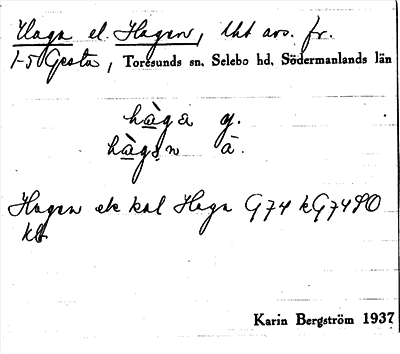 Haga el. Hagen, lht avs. fr.
1-5 Gesta, Toresunds sn. Selebo hd. Södermanlands län
hàga g.
hàgen ä.
Hagen ek kal Haga G74 kG74SO
Karin Bergström 1937